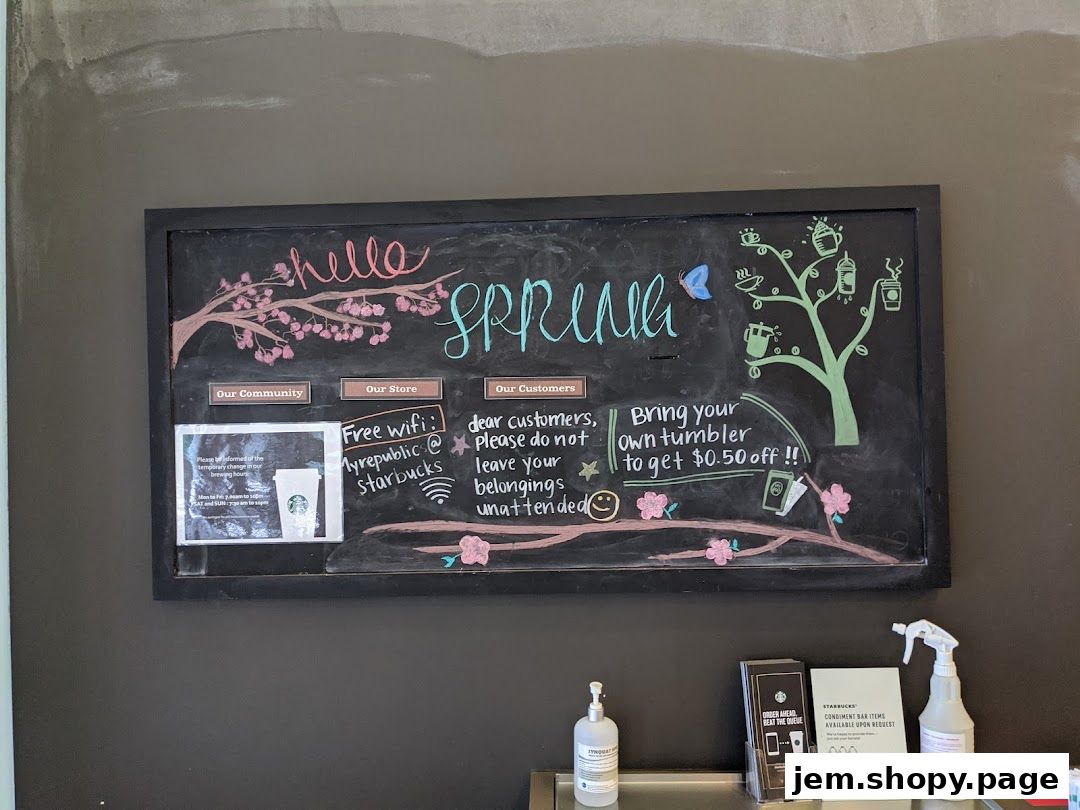 hello
SPRING
Our Community
Our Store
Our Customers
Please be informed of the
temporary change in our
brewing hours:
Mon to Fri: 7.00am to 10pm
SAT and SUN : 7:30 am to 10pm
Free wifi:
Myrepublic@
starbucks
dear customers,
please do not
leave your
belongings
unattended
Bring your
own tumbler
to get $0.50 off !!
ORDER AHEAD,
BEAT THE QUEUE
STARBUCKS®
CONDIMENT BAR ITEMS
AVAILABLE UPON REQUEST
We're happy to provide them –
just ask your barista!
jem.shopy.page